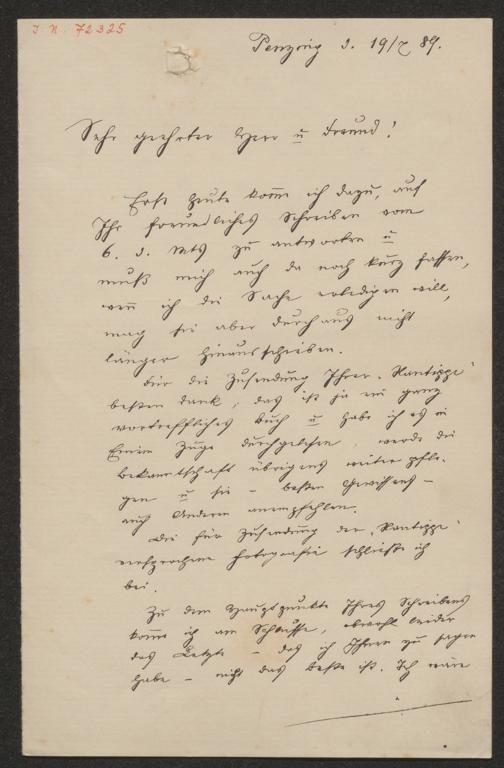 I. N. 72325
Penzing d. 19/7 89.
Sehr geehrter Herr u Freund!
Erst heute kom̄e ich dazu, auf
Ihr freundliches Schreiben vom
6. d. Mts zu antworten u
muß mich auch da noch kurz fassen,
wen̄ ich die Sache erledigen will,
mag sie aber durchaus nicht
länger hinausschieben.
Für die Zusendung Ihrer „Xantippe"
besten Dank; das ist ja ein ganz
vortreffliches Buch u habe ich es in
Einem Zuge durchgelesen, werde die
Bekanntschaft übrigens weiter pfle-
gen u sie – besten Gewissens –
auch Anderen anempfehlen.
Die für Zusendung der „Xantippe"
versprochene Fotografie schließe ich
bei.
Zu dem Hauptpunkte Ihres Schreibens
kom̄e ich am Schlusse, obwohl leider
das Letzte – das ich Ihnen zu sagen
habe – nicht das Beste ist. Ich wäre